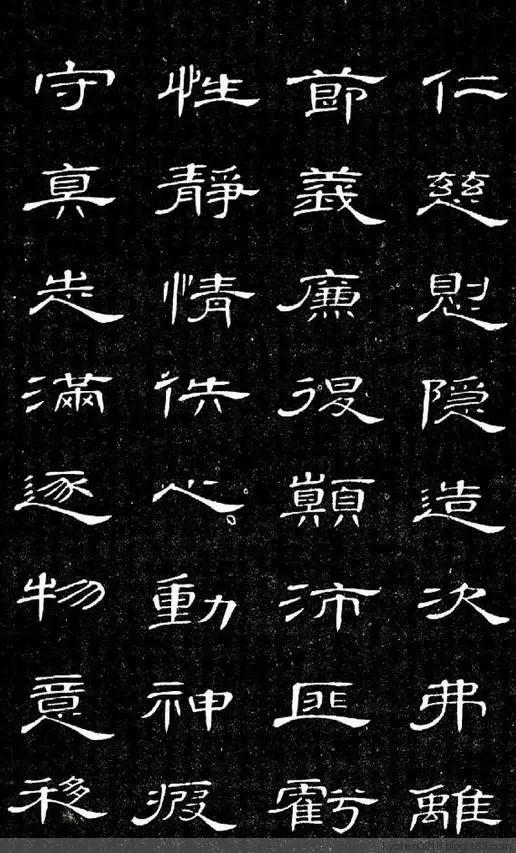 仁慈惻隱造次弗離
節義廉退顛沛匪虧
性靜情佚心動神疲
守真志滿逐物意移